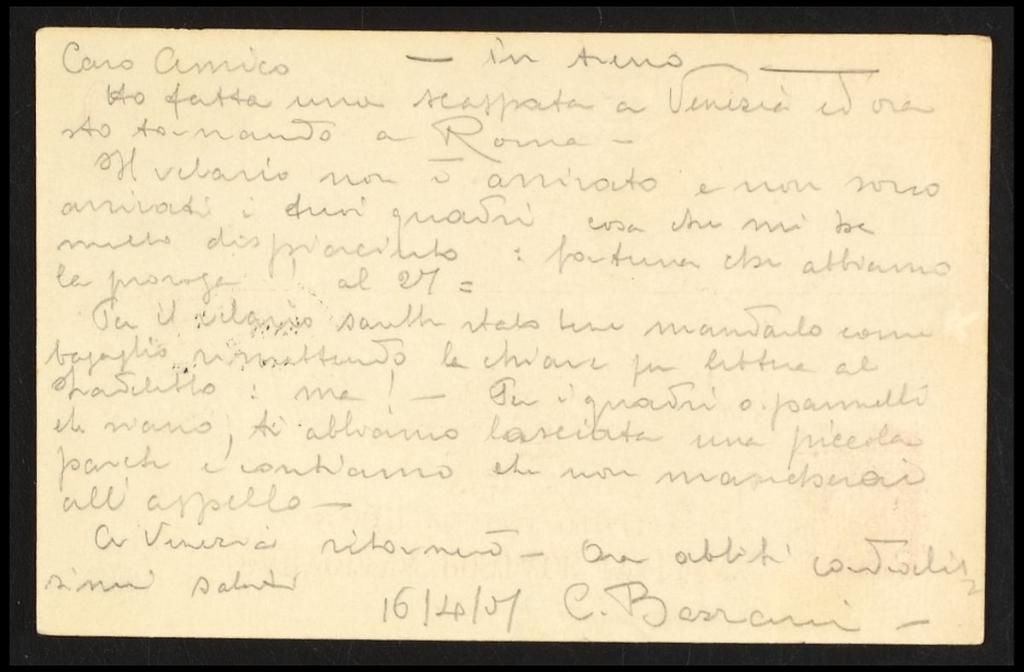 Caro Amico — in treno —
Ho fatta una scappata a Venezia ed ora
sto tornando a Roma –
Il velario non è arrivato e non sono
arrivati i tuoi quadri cosa che mi ha
molto dispiaciuto : fortuna che abbiamo
la proroga al 27 =
Per il velario sarebbe stato bene mandarlo come
bagaglio rimettendo la chiave per lettera al
: ma ! — Per i quadri o pannelli
che siano, ti abbiamo lasciata una piccola
parete e contiamo che non mancherai
all'appello —
A Venezia ritornerò — Ora abbiti cordialis
simi saluti
16/4/ C. Bazzani —